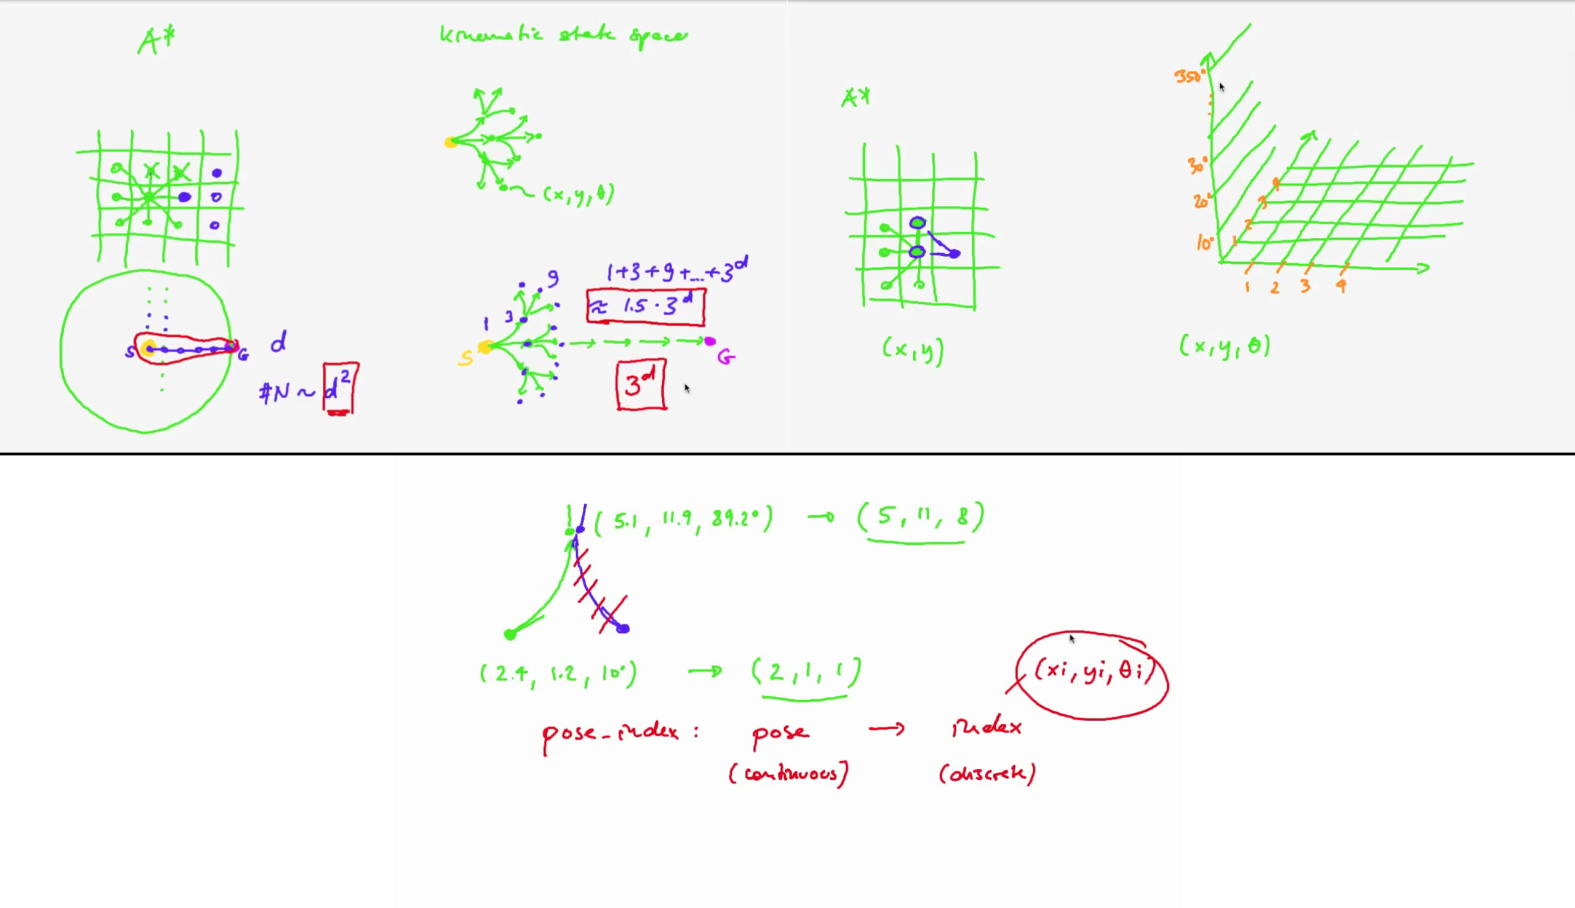 A*
Kinematic state space
(x, y, θ)
S
G
d
#N ~ d²
1
3
9
1+3+9+...+3^d
≈ 1.5 · 3^d
S
G
3^d
A*
(x,y)
350°
30°
20°
10°
4
3
2
1
1 2 3 4
(x, y, θ)
(5.1, 11.9, 89.2°) → (5, 11, 8)
(2.4, 1.2, 10°) → (2, 1, 1)
(xi, yi, θi)
pose-index : pose → index
(continuous) (discrete)